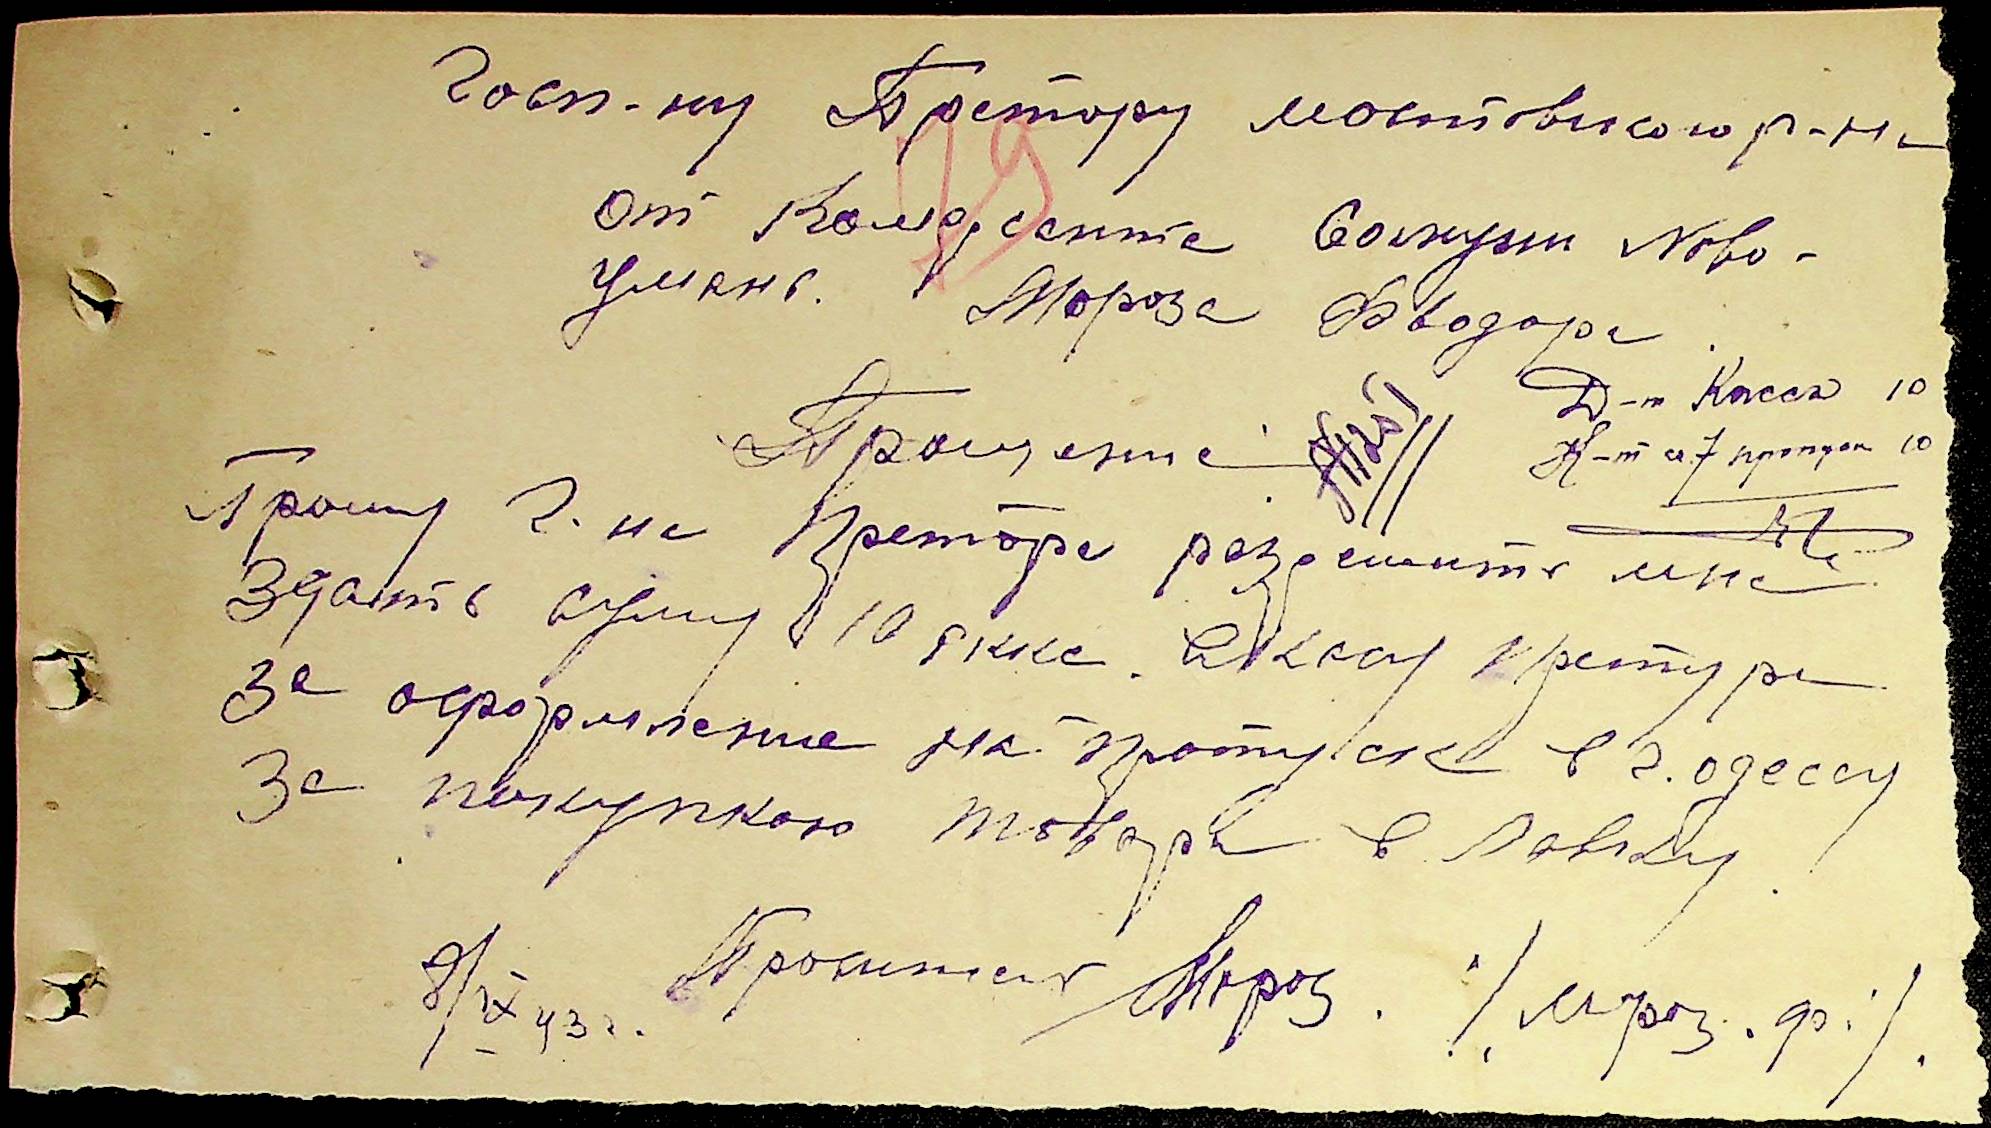 Госп-ну Претору мостовского р-на
29
от Комерсанта Солкуци Ново-
умань. Мороза Фёодора
Прошение
Д-т Касса 10
К-т сч 7 пропуск 10
Прошу Г. на Претора разрешить мне
Здать суму 10 якке. в касу претуре
За оформление на пропуск в г. одессу
За покупкою товара в Лавку
8/IX 43 г. Проситель Мороз. /Мороз. Ф./